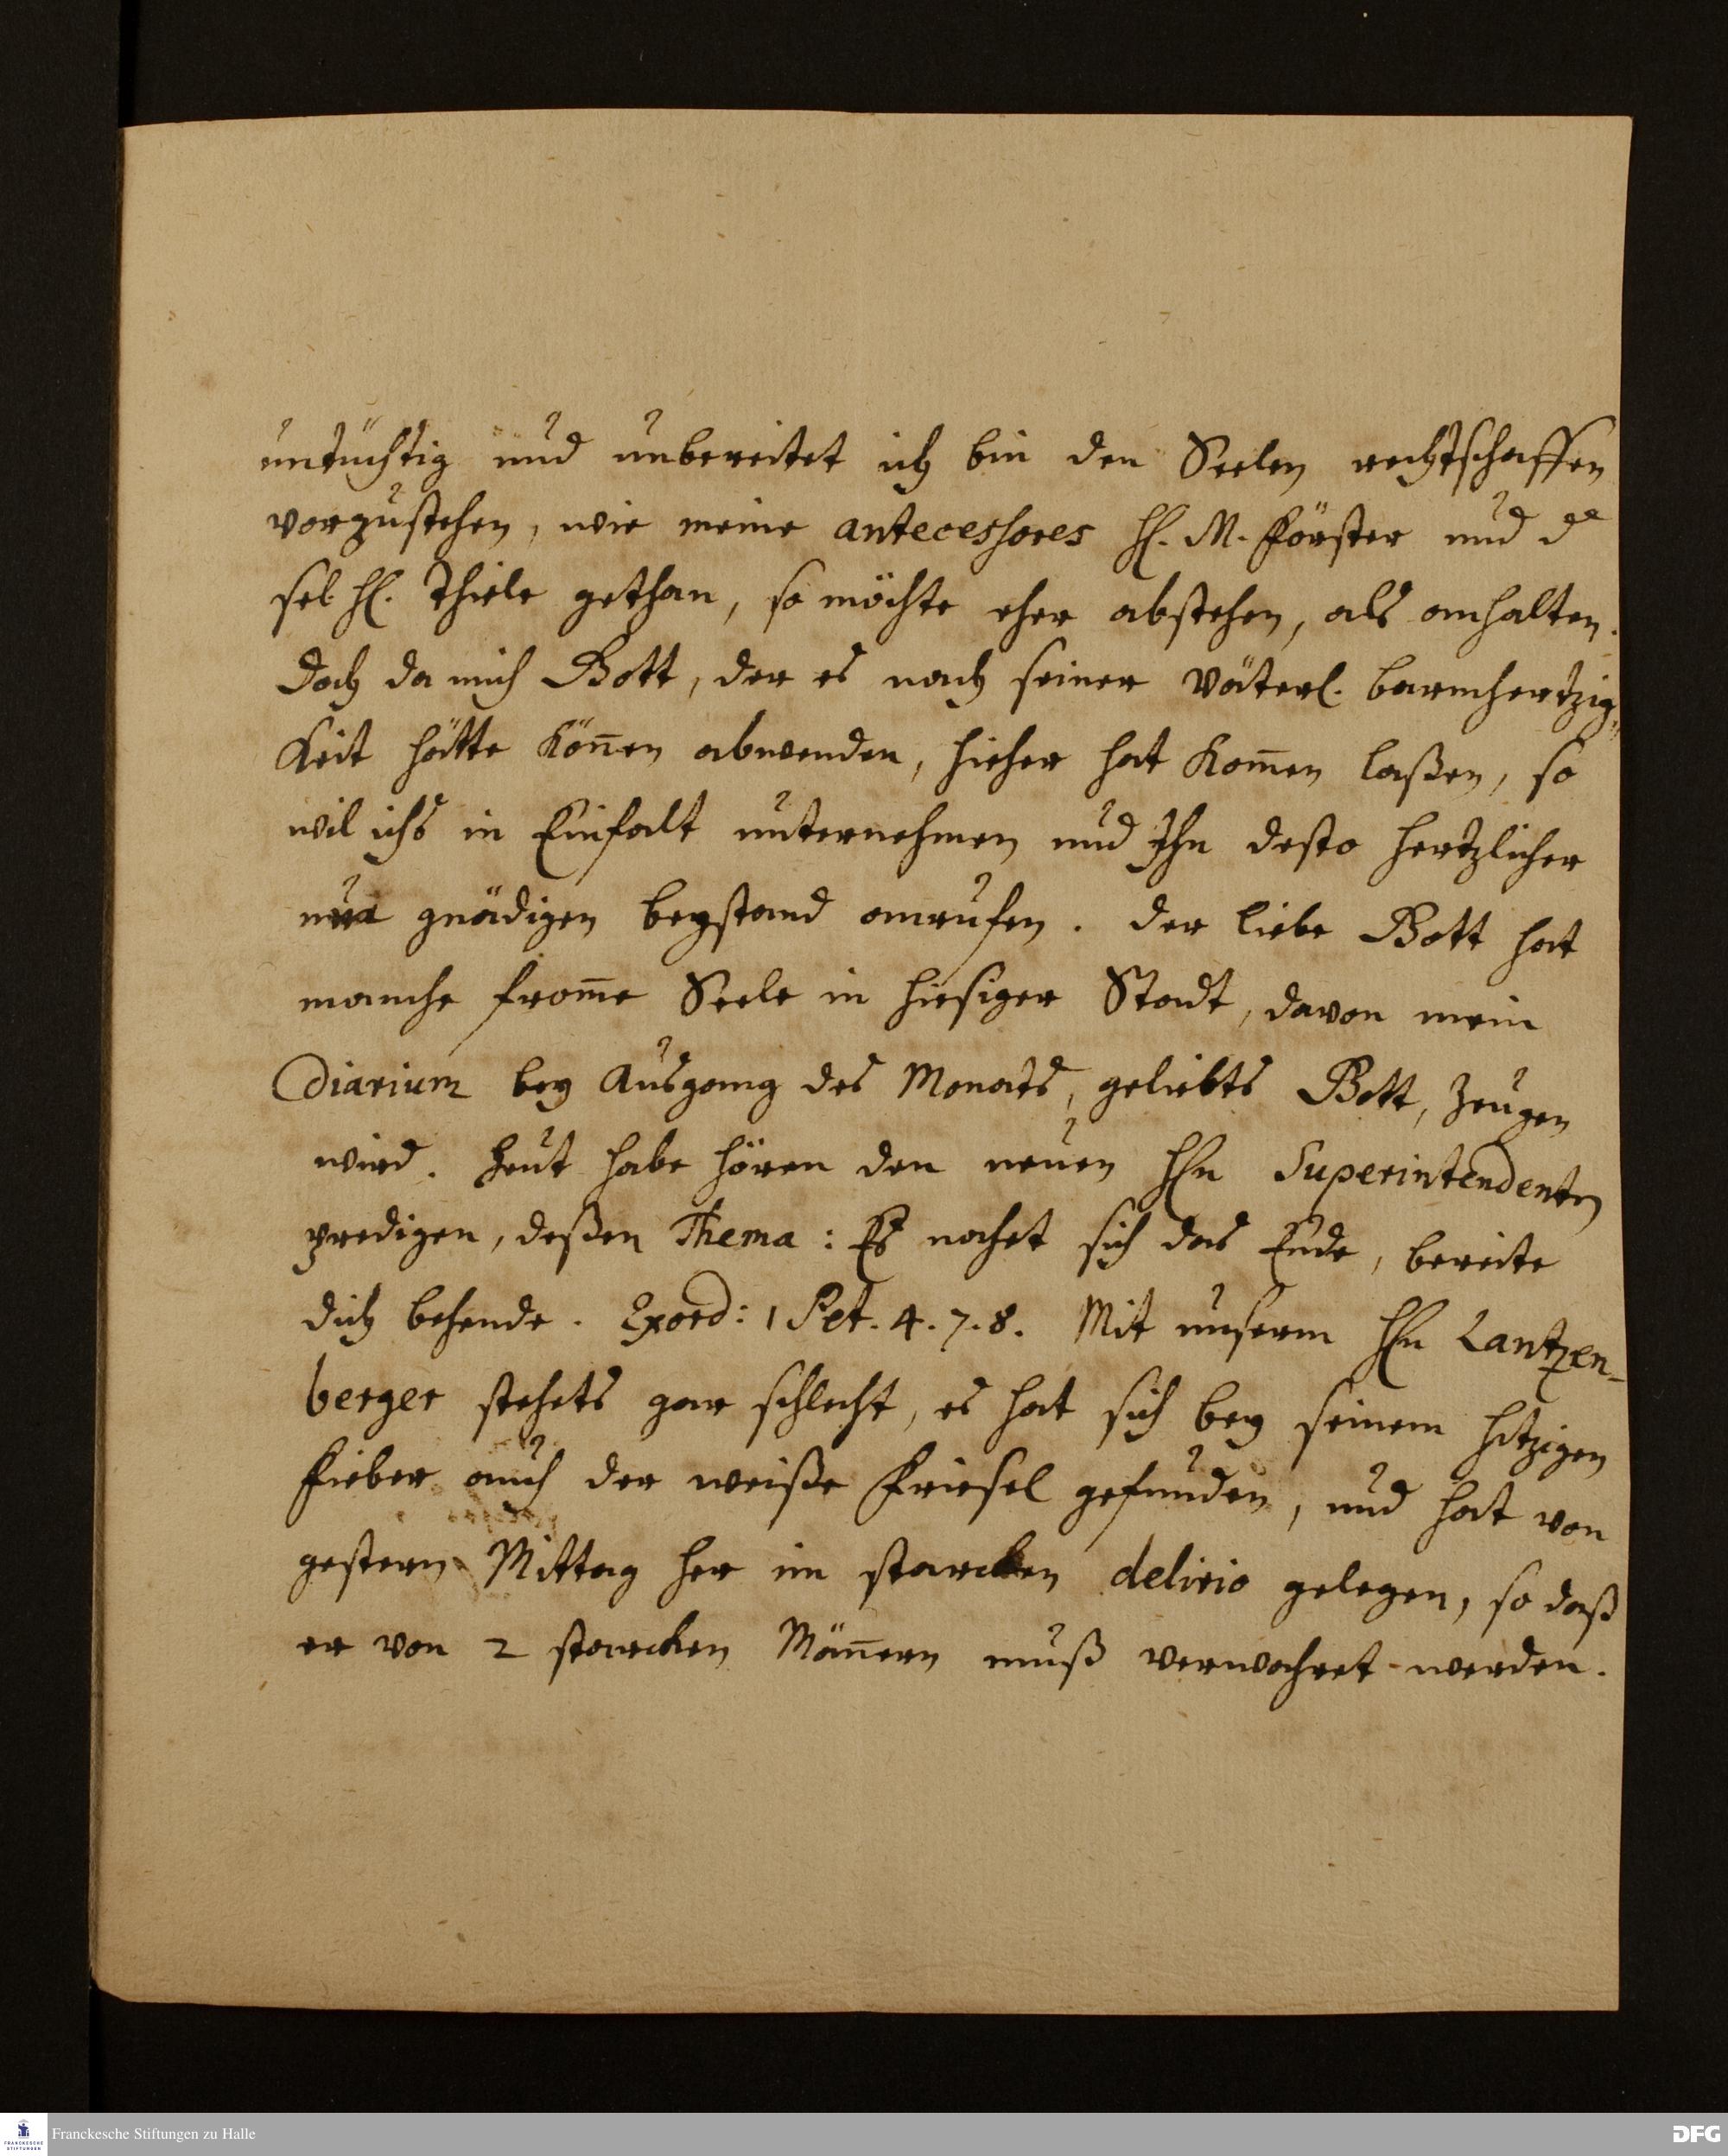 untüchtig und unbereitet ich bin den Seelen rechtschaffen
vorzustehen, wie meine antecessores H. M. Förster und d
sel H. Thiele gethan, so möchte eher abstehen, als anhalten.
Doch da mich Gott, der es nach seiner Väterl. barmhertzig„
keit hätte können abwenden, hieher hat kom̅en laßen, so
wil ichs in Einfalt unternehmen und Ihn desto hertzlicher
gnädigen beystand anrufen. Der liebe Gott hat
manche from̅e Seele in hiesiger Stadt, davon mein
Diarium bey Ausgang des Monats, geliebts Gott, zeugen
wird. Heut habe hören den neuen HEn Superintendenten
predigen, deßen Thema: Es nahet sich das Ende, bereite
dich behende. Exord: 1 Pet. 4. 7. 8. Mit unserm HEn Lantzen-
berger stehets gar schlecht, es hat sich bey seinem hitzigen
Fieber auch der weiße Friesel gefunden, und hat von
gestern Mittag her im starcken delirio gelegen, so daß
er von 2 starcken Män̅ern muß verwahret werden.
Franckesche Stiftungen zu Halle
FRANCKESCHE STIFTUNGEN
DFG